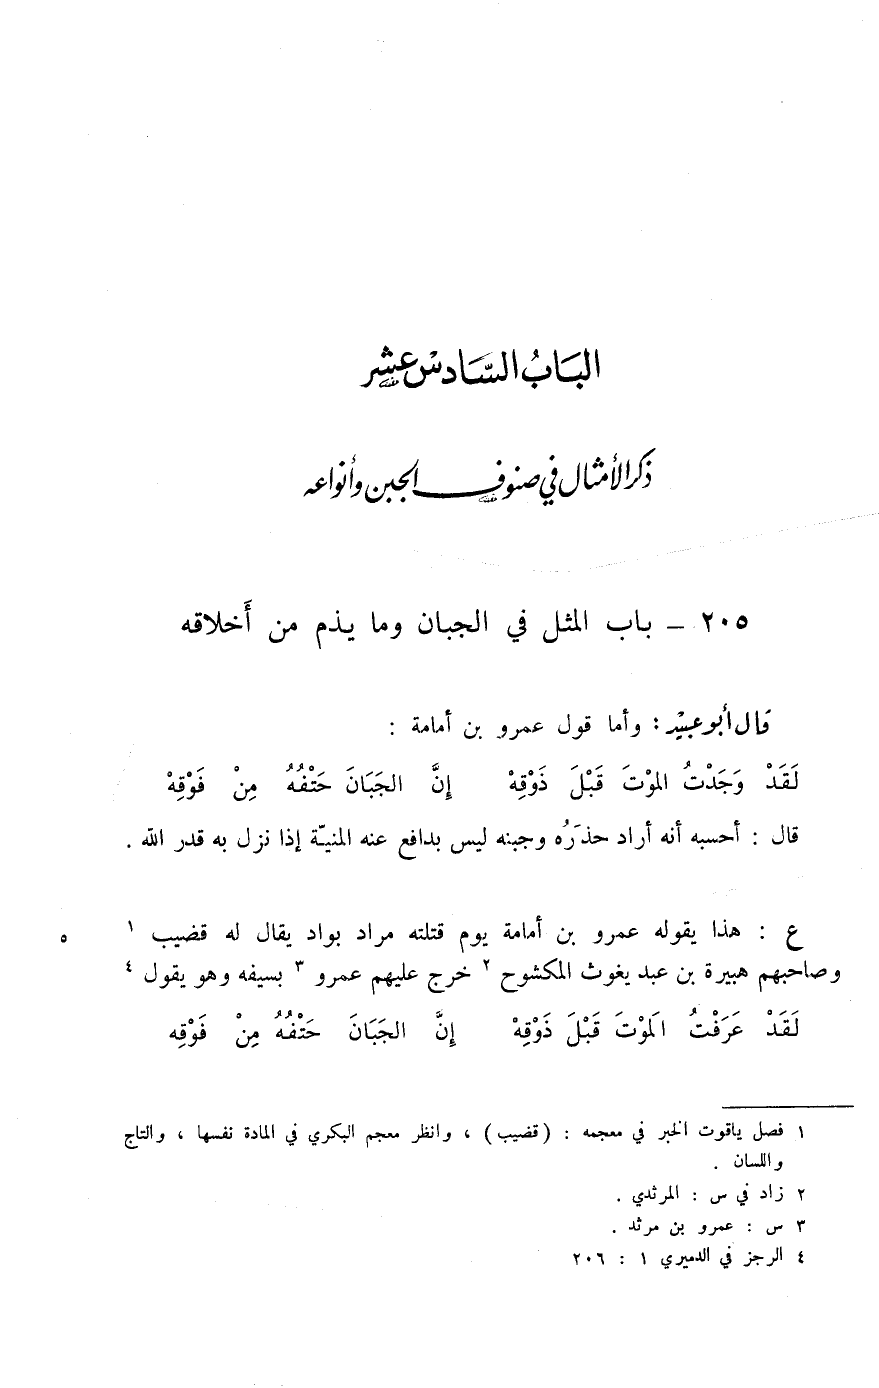 البَابُ السَّادسْ عشِر
ذكر الأمثال في صنوف الجبن وأنواعه
٢٠٥ – باب المثل في الجبان وما يذم من أَخلاقه
قال أبو عبيد : وأما قول عمرو بن أمامة :
لَقَدْ وَجَدْتُ الموْتَ قَبْلَ ذَوْقِهْ إنَّ الجَبَانَ حَتْفُهُ مِنْ فَوْقِهْ
قال : أحسبه أنه أراد حذَرُه وجبنه ليس بدافع عنه المنيّة إذا نزل به قدر الله .
ع : هذا يقوله عمرو بن أمامة يوم قتلته مراد بواد يقال له قضيب ١
٥
وصاحبهم هبيرة بن عبد يغوث المكشوح ٢ خرج عليهم عمرو ٣ بسيفه وهو يقول ٤
لَقَدْ عَرَفْتُ الَموْتَ قَبْلَ ذَوْقِهْ إنَّ الجَبَانَ حَتْفُهُ مِنْ فَوْقِه
١ فصل ياقوت الخبر في معجمه : (قضيب) ، وانظر معجم البكري في المادة نفسها ، والتاج
واللسان .
٢ زاد في س : المرثدي .
٣ س : عمرو بن مرثد .
٤ الرجز في الدميري ١ : ٢٠٦